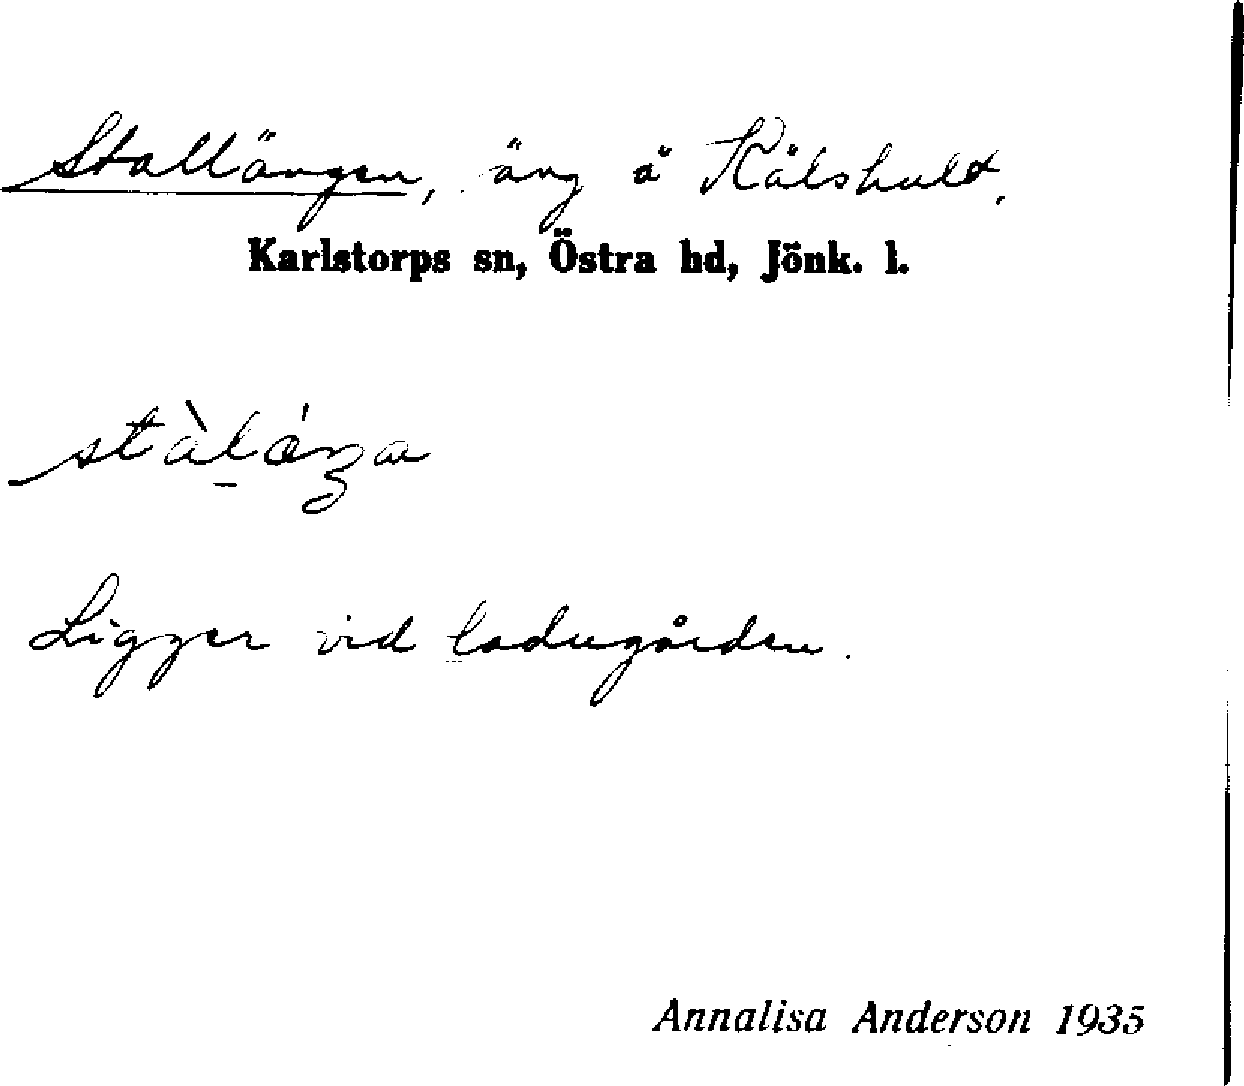 Stallängen, äng å Kålshult.
Karlstorps sn, Östra hd, Jönk. l.
Ligger vid ladugården.
Annalisa Anderson 1935